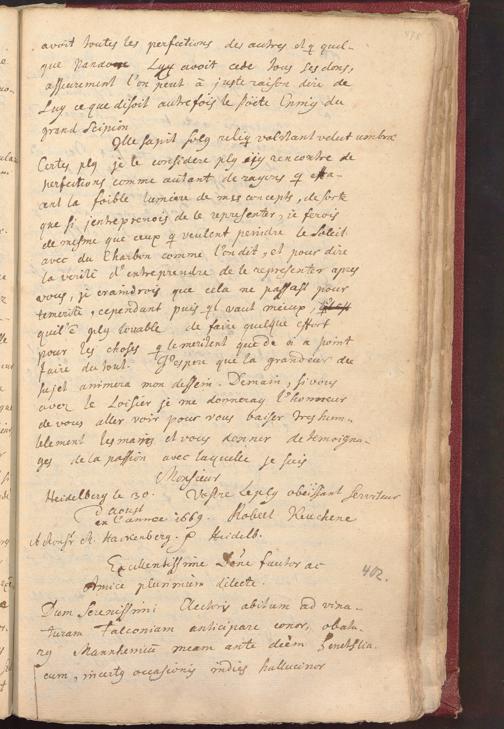 avoit toutes les perfections des autres et q quel-
que Pandore Luy avoit cede tous ses dons,
asseurement l'on peut à juste raison dire de
Luy ce que disoit autrefois le Poëte Ennig du
grand Scipion
Ille sapit solg reliq volitant velut umbrae
Certes plg je le considere plg j'y rencontre de
perfections comme autant de rayons q effa-
cent la foible lumiere de mes concepts, de sorte
que si j'entreprenois de le representer, je ferois
de mesme que ceux q veulent peindre le Soleil
avec du Charbon comme l'on dit, et pour dire
la verité d'entreprendre de le representer apres
vous, je craindrois que cela ne passast pour
temerité, cependant puis ql vaut mieux
qu'il è plg louable de faire quelque effort
pour les choses q le meritent que de n'a point
faire du tout. J'espere que la grandeur du
sujet animera mon dessein. Demain, si vous
avez le Loisier je me donneray l'honneur
de vous aller voir pour vous baiser tres hum-
blement les mains et vous donner de temoigna-
ges de la passion avec laquelle je suis
Monsieur
Heidelberg le 30. Vostre le plg obeissant Serviteur
d'Aoust
en l'annee 1669. Robert Keuchene
A Monsr R. Hackenberg. p Heidelb.
Excellentissime Dne fautor ac
Amice plurimum dilecte. 402.
Dum Serenissimi Electoris abitum ad vena-
turam Falconiam anticipare conor, obatu
rg Mannhemiū meam ante diem Genethlia-
cum, incertg occasionis indies hallucinor